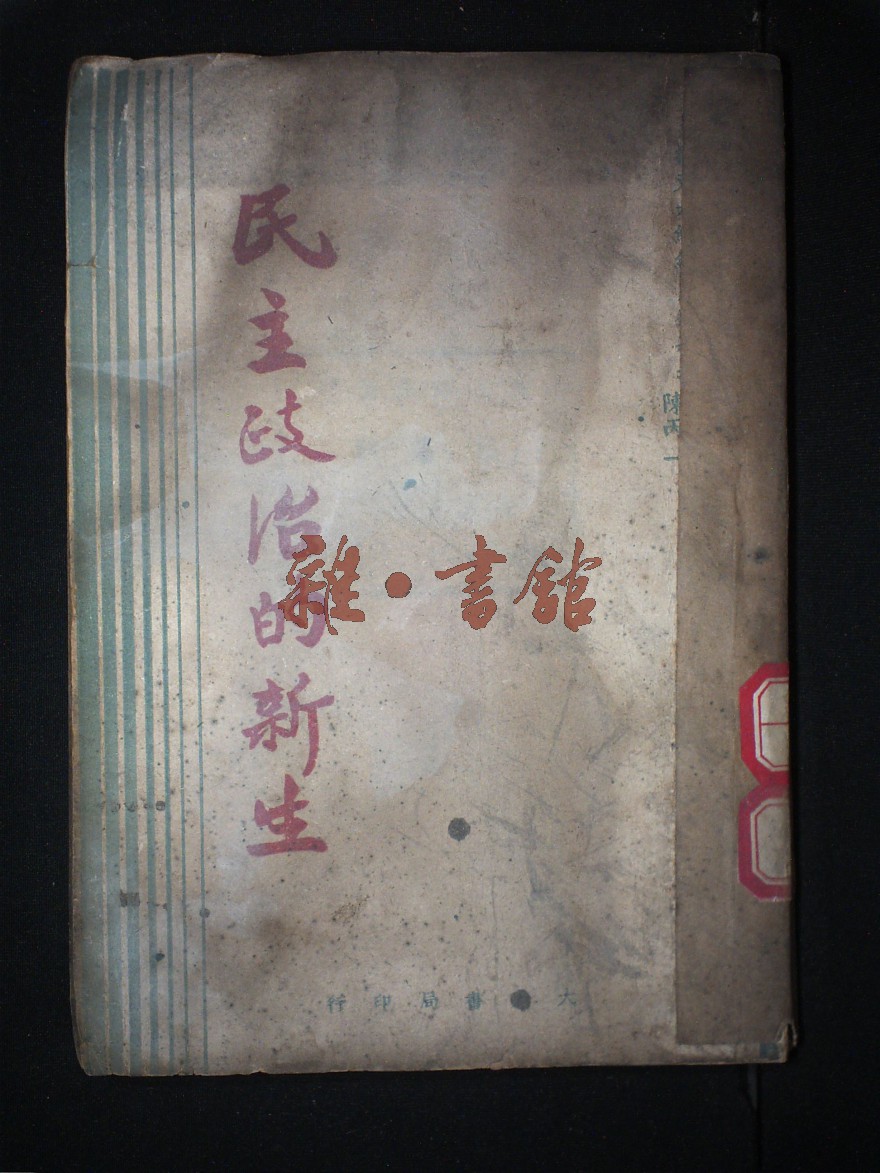 陳丙一
民主政治的新生
雜·書館
大 書局印行